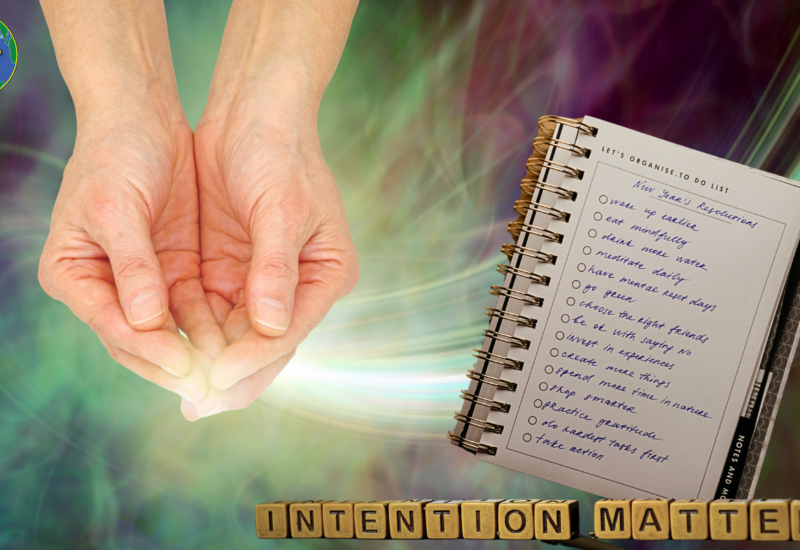 LET'S ORGANISE. TO DO LIST
New Year's Resolutions
wake up earlier
eat mindfully
drink more water
meditate daily
have mental reset days
go green
choose the right friends
be ok with saying no
invest in experiences
create more things
spend more time in nature
shop smarter
practice gratitude
do hardest tasks first
take action
NOTES AND MO
INTENTION MATTE